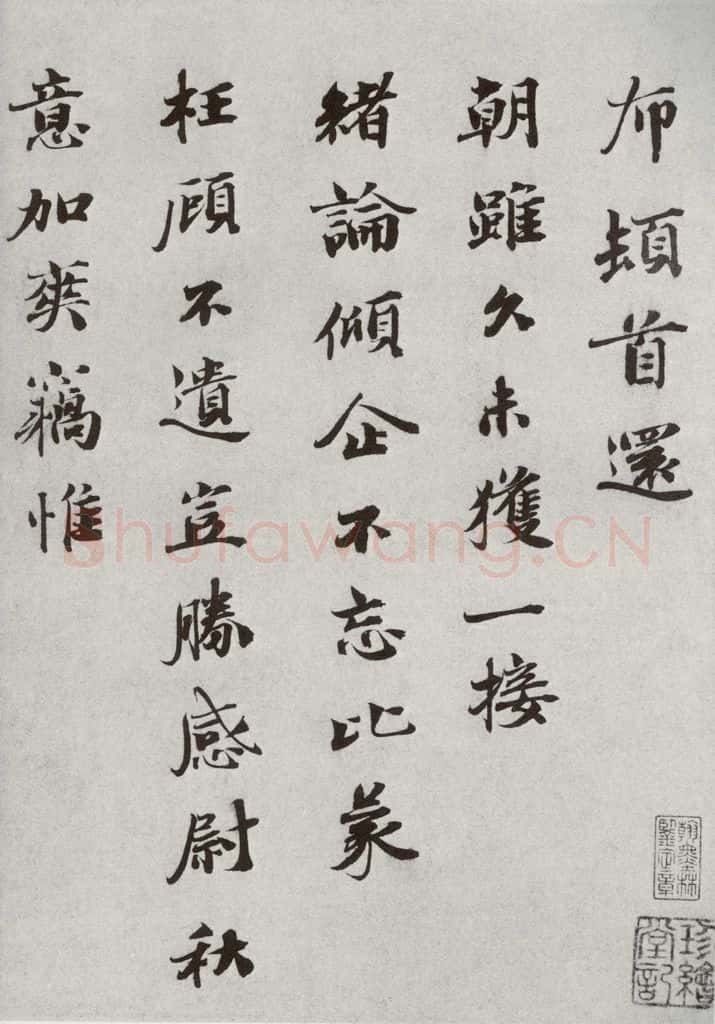 布頓首還
朝雖久未獲一接
緒論傾企不忘比蒙
枉顧不遺豈勝感尉秋
意加爽竊惟
翰墨林鑒定章
珍繪堂記
Shufawang.CN